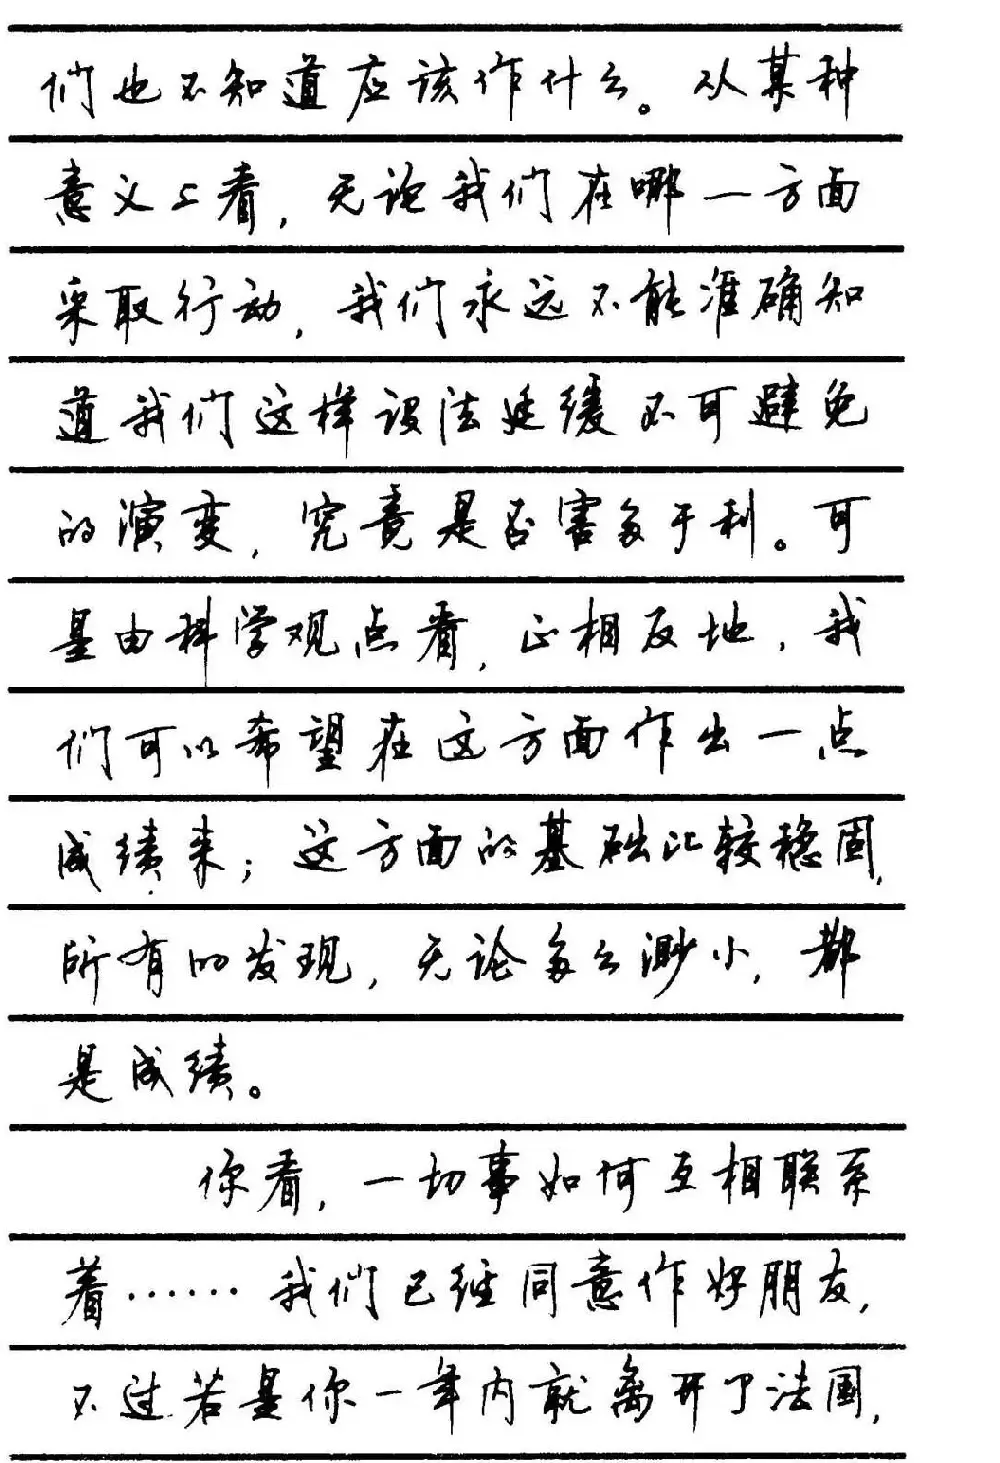 们也不知道应该作什么。从某种
意义上看,无论我们在哪一方面
采取行动,我们永远不能准确知
道我们这样设法延缓不可避免
的演变,究竟是否害多于利。可
是由科学观点看,正相反地,我
们可以希望在这方面作出一点
成绩来;这方面的基础比较稳固,
所有的发现,无论多么渺小,都
是成绩。
你看,一切事如何互相联系
着……我们已经同意作好朋友,
不过若是你一年内就离开了法国,